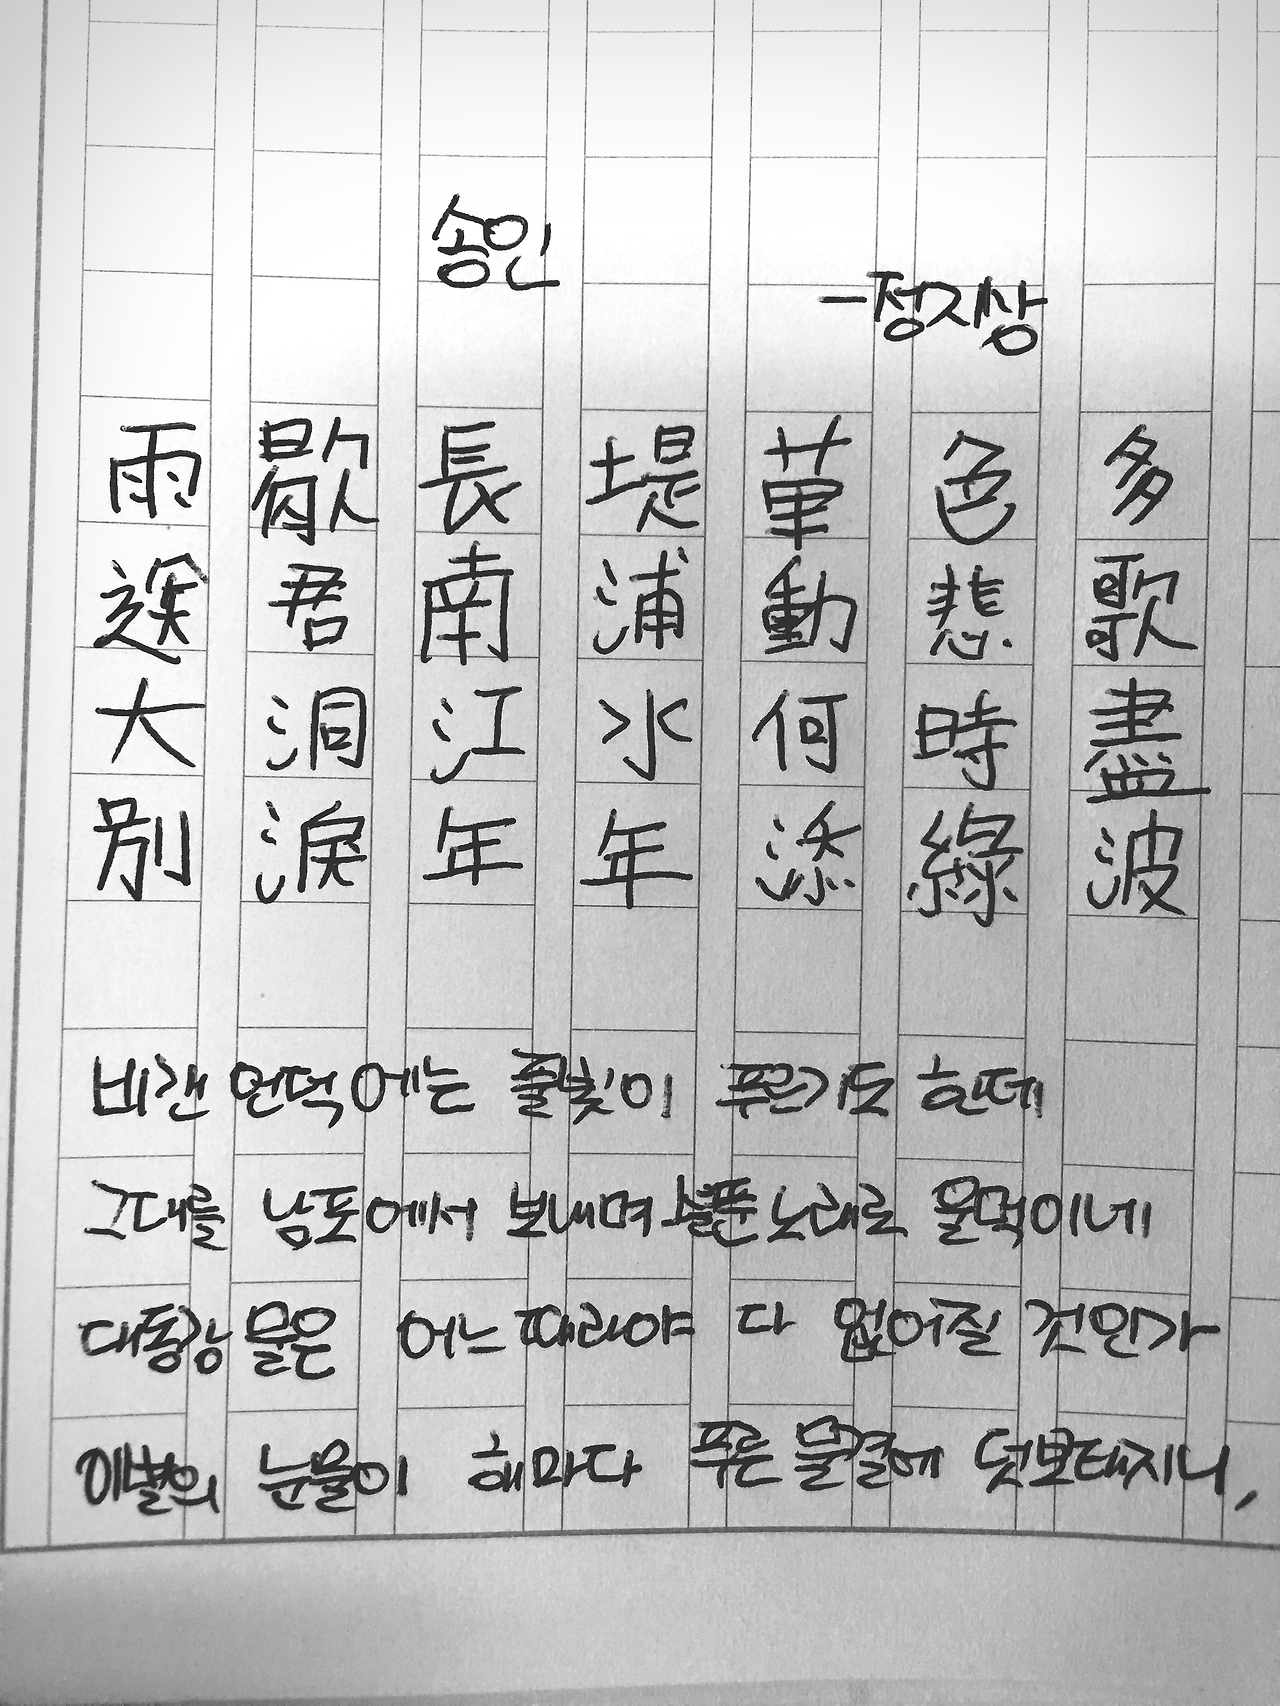 송인
-정지상
雨歇長堤草色多
送君南浦動悲歌
大洞江水何時盡
別淚年年添綠波
비갠 언덕에는 풀빛이 푸르기도 한데
그대를 남포에서 보내며 슬픈 노래로 울먹이네
대동강 물은 어느때라야 다 없어질 것인가
이별의 눈물이 해마다 푸른 물결에 덧보태지니,